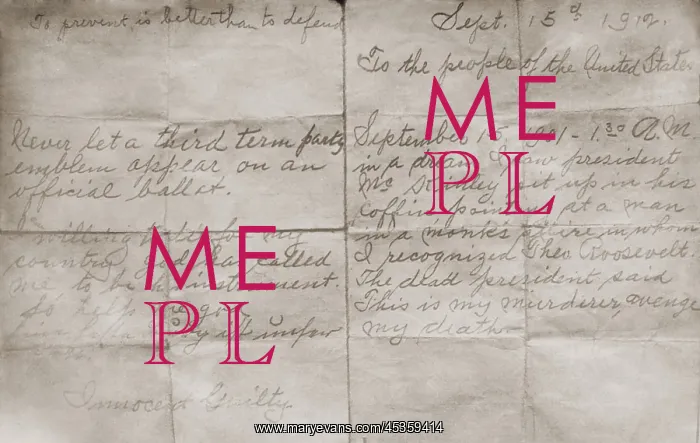 To prevent is better than to defend
Never let a third term party
emblem appear on an
official ballot.
I willing for my
country god has called
me to be instrument.
So help me god
by all unfair
Innocent Guilty
Sept. 15 d 1912.
To the people of the United States
September 15, 1901 - 1 30 A.M.
in a dream I saw president
Mc Kinley sit up in his
coffin pointing at a man
in a monk's attire in whom
I recognized Theo. Roosevelt.
The dead president said
This is my murderer, avenge
my death
ME
PL
ME
PL
www.maryevans.com/45359414